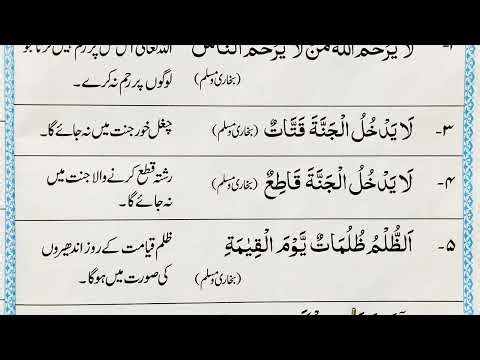 لَا یَرْحَمُ اللّٰهُ مَنْ لَّا یَرْحَمُ النَّاسَ
لوگوں پر رحم نہ کرے۔ (بخاری و مسلم)
۳- لَا یَدْخُلُ الْجَنَّةَ قَتَّاتٌ (بخاری و مسلم) چغل خور جنت میں نہ جائے گا۔
۴- لَا یَدْخُلُ الْجَنَّةَ قَاطِعٌ (بخاری و مسلم) رشتہ قطع کرنے والا جنت میں
نہ جائے گا۔
۵- اَلظُّلْمُ ظُلُمَاتٌ یَّوْمَ الْقِیٰمَةِ ظلم قیامت کے روز اندھیروں
(بخاری و مسلم) کی صورت میں ہوگا۔